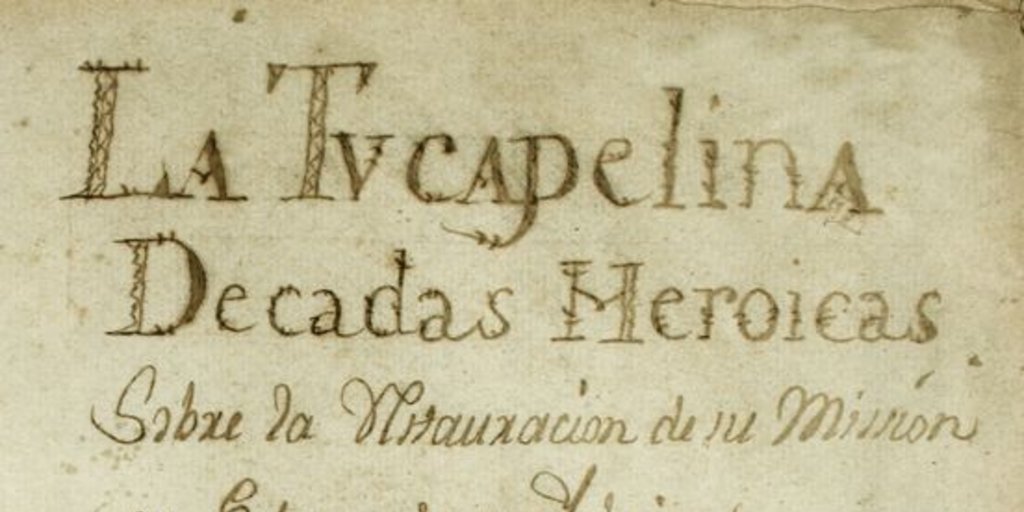 LA TVCApelinA
Decadas Heroicas
Sobre la Restauracion de su Mission